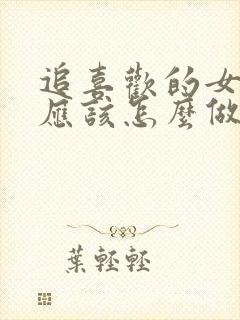 追喜歡的女
應該怎麼做
葉輕輕